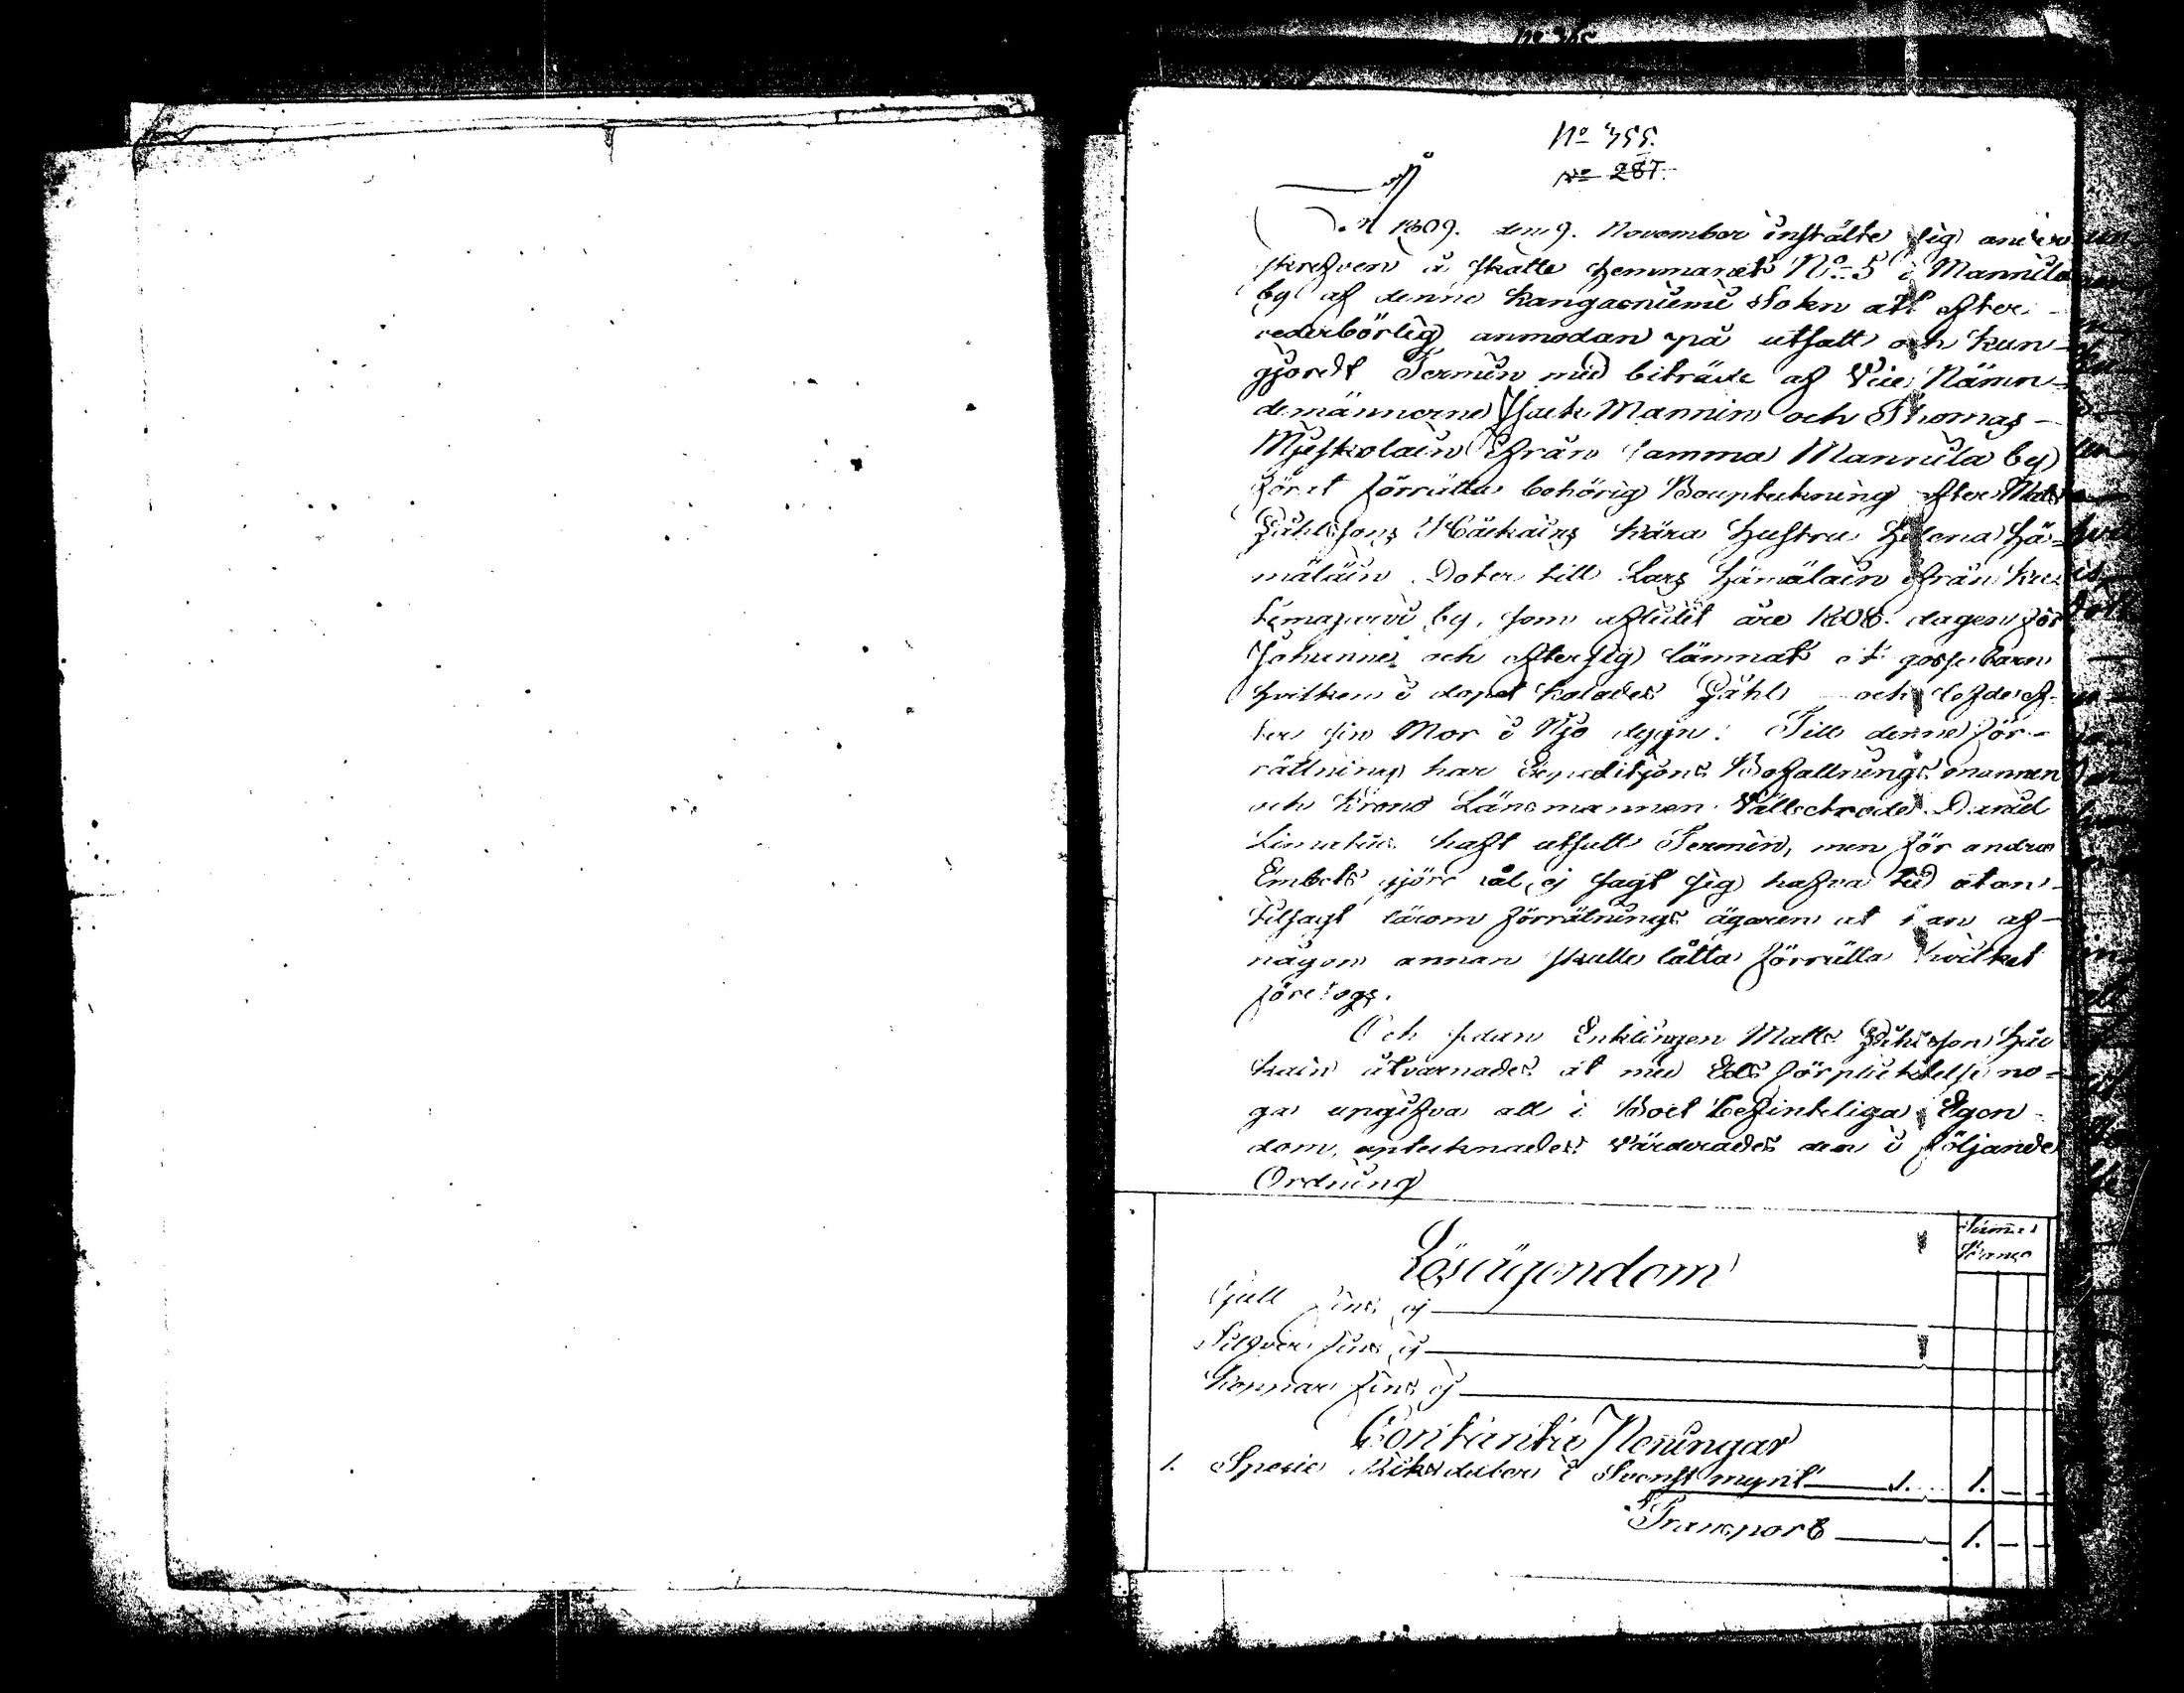 No 355.
No 287.
År 1809. den 9. November instälte sig under
skrefven å skatte hemmanet No 5 i Mannila
by af denne Kangasniemi Sokn att efter
vederbörlig anmodan på utsatt och kun-
gjordt Termin med biträde af Vice Nämn-
demännerne Isack Mannin och Thomas
Myskolain ifrån samma Mannila by
för at förrätta behörig Boupteckning efter Matts
Påhlssons kära Hustru Helena Hä-
mäläin Doter till Lars Hämälain ifrån
by, som aflidit åre 1808. dagen för
Johannes och efter sig lämnat et gosse barn
hvilken i dopet kalades Påhl och lefde ef-
ter sin Mor i Nijo dygn. Till denne för-
rättning har Expeditjons Befallnings mannen
och Krono Länsmannen Vällachtade Daniel
haft utsatt Termin, men för andra
Embets gjöre mål ej sagt sig hafva tid utan
tilsagt förrätnings ägaren at han af
någon annan skulle låtta förrätta hvilket
företogs.
Och sedan Enklingen Matts Påhlsson
kain åtvarnades at med Eds förplicktelse no-
ga uppgifva all i Boet befinteliga Egen-
dom, uptecknades Värderades den i följande
Ordning
Summa
Banco
Lösägendom
Gull fins ej
Silfver fins ej
Koppar fins ej
Contanta Peningar
1. Specie Riksdaler i Svenst mynt 1. 1. — —
Transport 1. — —